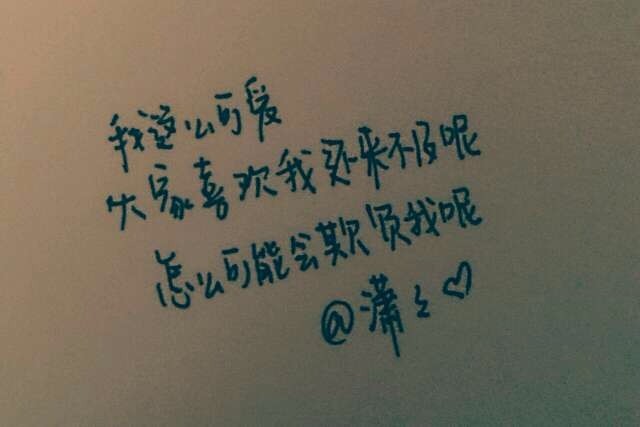 我这么可爱
大家喜欢我还来不及呢
怎么可能会欺负我呢
@潇々♡